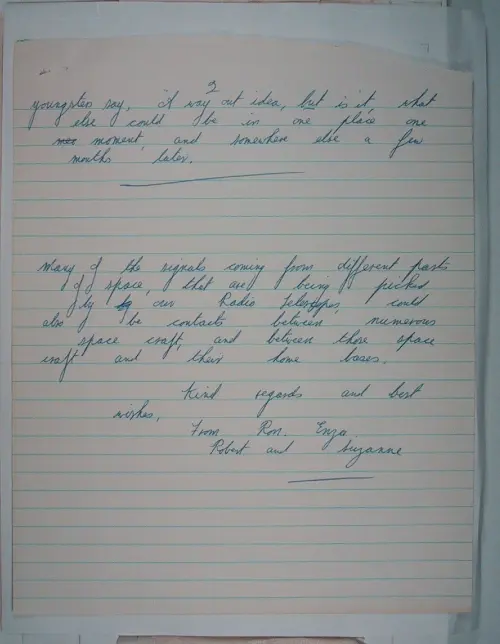 2
youngsters say, "A way out idea, but is it, what
else could be in one place one
moment, and somewhere else a few
months later.
Many of the signals coming from different parts
of space, that are being picked
by our Radio telescopes, could
also be contacts between numerous
space craft, and between those space
craft and their home bases.
Kind regards and best
wishes,
From Ron. Enza
Robert and Suzanne